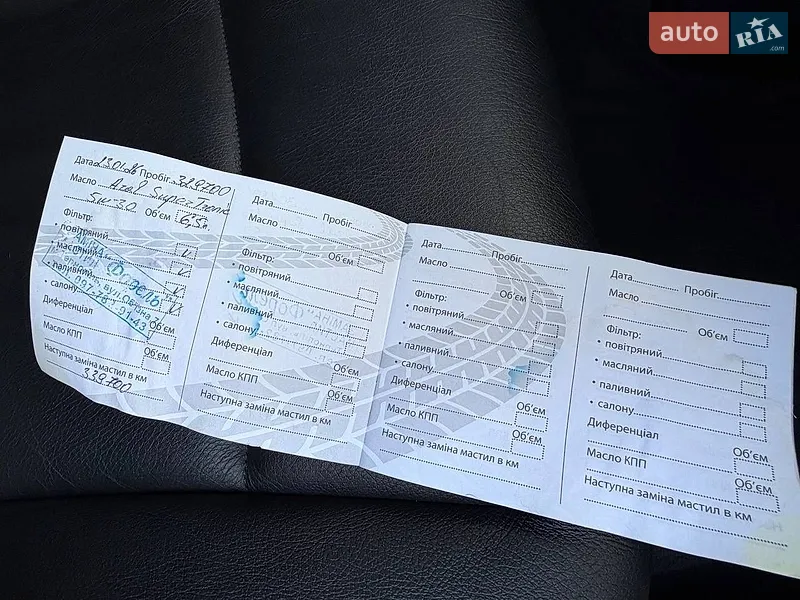 auto RIA .com
Дата 23.01.26 Пробіг 329700
Масло Aral Super Tronic
5W-30 Об'єм 6,5л
Фільтр:
• повітряний V
• масляний V
• паливний V
• салону V
Диференціал Об'єм
Масло КПП Об'єм
Наступна заміна мастил в км
339700
Дата Пробіг
Масло
Об'єм
Фільтр:
• повітряний
• масляний
• паливний
• салону
Диференціал
Об'єм
Масло КПП
Об'єм
Наступна заміна мастил в км
Дата Пробіг
Масло
Об'єм
Фільтр:
• повітряний
• масляний
• паливний
• салону
Диференціал
Об'єм
Масло КПП
Об'єм
Наступна заміна мастил в км
Дата Пробіг
Масло
Об'єм
Фільтр:
• повітряний
• масляний
• паливний
• салону
Диференціал
Об'єм
Масло КПП
Об'єм
Наступна заміна мастил в км